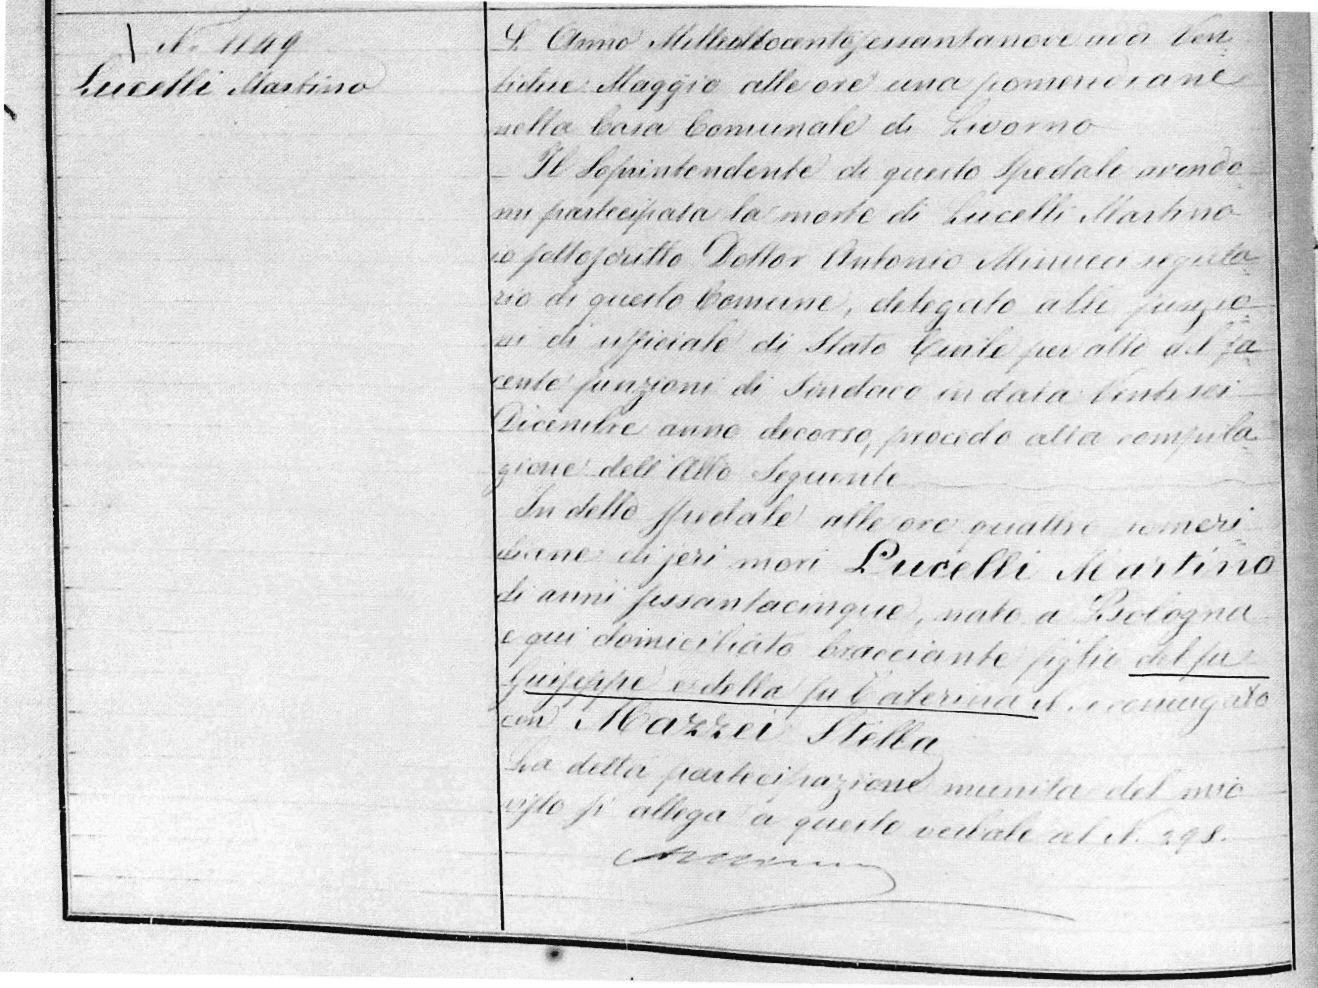 N. 1149
Lucelli Martino
L'Anno Milleottocentosessantanove a di Ven
tidue Maggio alle ore una pomeridiane
nella Casa Comunale di Livorno
Il Soprintendente di questo Spedale avendo
mi partecipata la morte di Lucelli Martino
io sottoscritto Dottor Antonio Minucci segreta
rio di questo Comune, delegato alle funzio
ni di ufficiale di Stato Civile per atto del fa
cente funzioni di Sindaco in data Ventisei
Dicembre anno decorso, procedo alla compila
zione dell'Atto Seguente
In detto Spedale alle ore quattro pomeri
diane di jeri morì Lucelli Martino
di anni sessantacinque, nato a Bologna
e qui domiciliato bracciante figlio del fu
Giuseppe e della fu Caterina N. coniugato
con Mazzei Stella
La detta partecipazione munita del mio
visto si allega a questo verbale al N. 298.